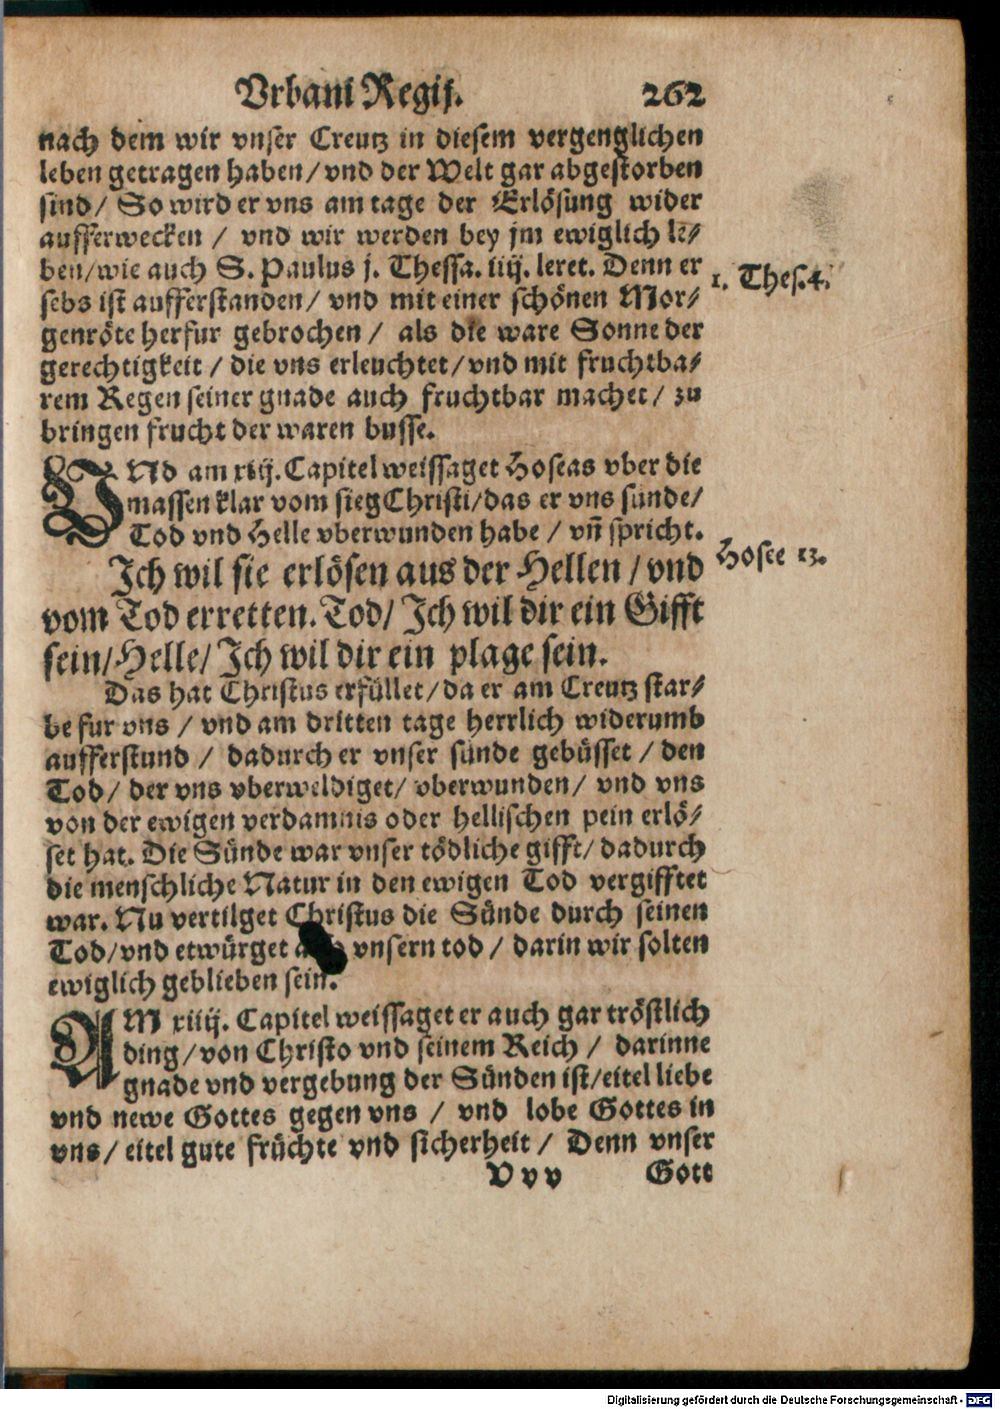 Vrbani Regij. 262
nach dem wir vnser Creutz in diesem vergenglichen
leben getragen haben/ vnd der Welt gar abgestorben
sind/ So wird er vns am tage der Erlösung wider
aufferwecken / vnd wir werden bey jm ewiglich le⸗
ben/wie auch S. Paulus j. Thessa. iiij. leret. Denn er
1. Thes. 4.
sebs ist aufferstanden/ vnd mit einer schönen Mor⸗
genröte herfur gebrochen / als die ware Sonne der
gerechtigkeit / die vns erleuchtet/ vnd mit fruchtba⸗
rem Regen seiner gnade auch fruchtbar machet/ zu
bringen frucht der waren busse.
VNd am xiij. Capitel weissaget Hoseas vber die
massen klar vom sieg Christi/das er vns sunde/
Tod vnd Helle vberwunden habe / vñ spricht.
Hosee 13.
Ich wil sie erlösen aus der Hellen / vnd
vom Tod erretten. Tod/ Ich wil dir ein Gifft
sein/Helle/ Ich wil dir ein plage sein.
Das hat Christus erfüllet/ da er am Creutz star⸗
be fur vns / vnd am dritten tage herrlich widerumb
aufferstund / dadurch er vnser sunde gebüsset / den
Tod/ der vns vberweldiget/ vberwunden/ vnd vns
von der ewigen verdamnis oder hellischen pein erlö⸗
set hat. Die Sünde war vnser tödliche gifft/ dadurch
die menschliche Natur in den ewigen Tod vergifftet
war. Nu vertilget Christus die Sünde durch seinen
Tod/vnd etwürget vnsern tod / darin wir solten
ewiglich geblieben sein.
AM xiiij. Capitel weissaget er auch gar tröstlich
ding / von Christo vnd seinem Reich / darinne
gnade vnd vergebung der Sünden ist/eitel liebe
vnd newe Gottes gegen vns / vnd lobe Gottes in
vns/ eitel gute früchte vnd sicherheit / Denn vnser
V v v Gott
Digitalisierung gefördert durch die Deutsche Forschungsgemeinschaft - DFG